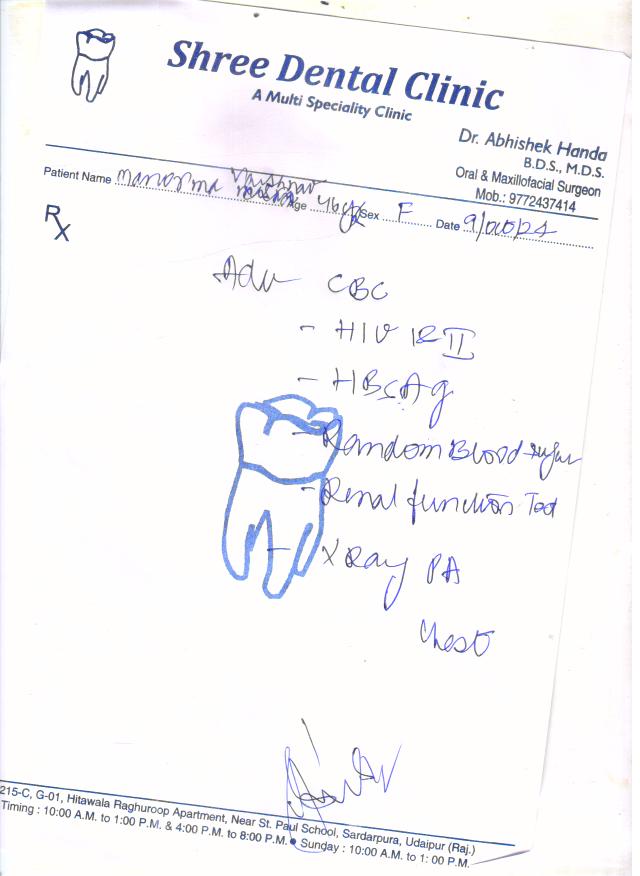 Shree Dental Clinic
A Multi Speciality Clinic
Dr. Abhishek Handa
B.D.S., M.D.S.
Oral & Maxillofacial Surgeon
Mob.: 9772437414
Patient Name Manorma Vaishnav Age 46 yr Sex F Date 9/Oct/24
Rx
Adv CBC
- HIV I & II
- HBsAg
- Random Blood sugar
- Renal function Test
- X Ray PA
Chest
215-C, G-01, Hitawala Raghuroop Apartment, Near St. Paul School, Sardarpura, Udaipur (Raj.)
Timing : 10:00 A.M. to 1:00 P.M. & 4:00 P.M. to 8:00 P.M. ● Sunday : 10:00 A.M. to 1: 00 P.M.